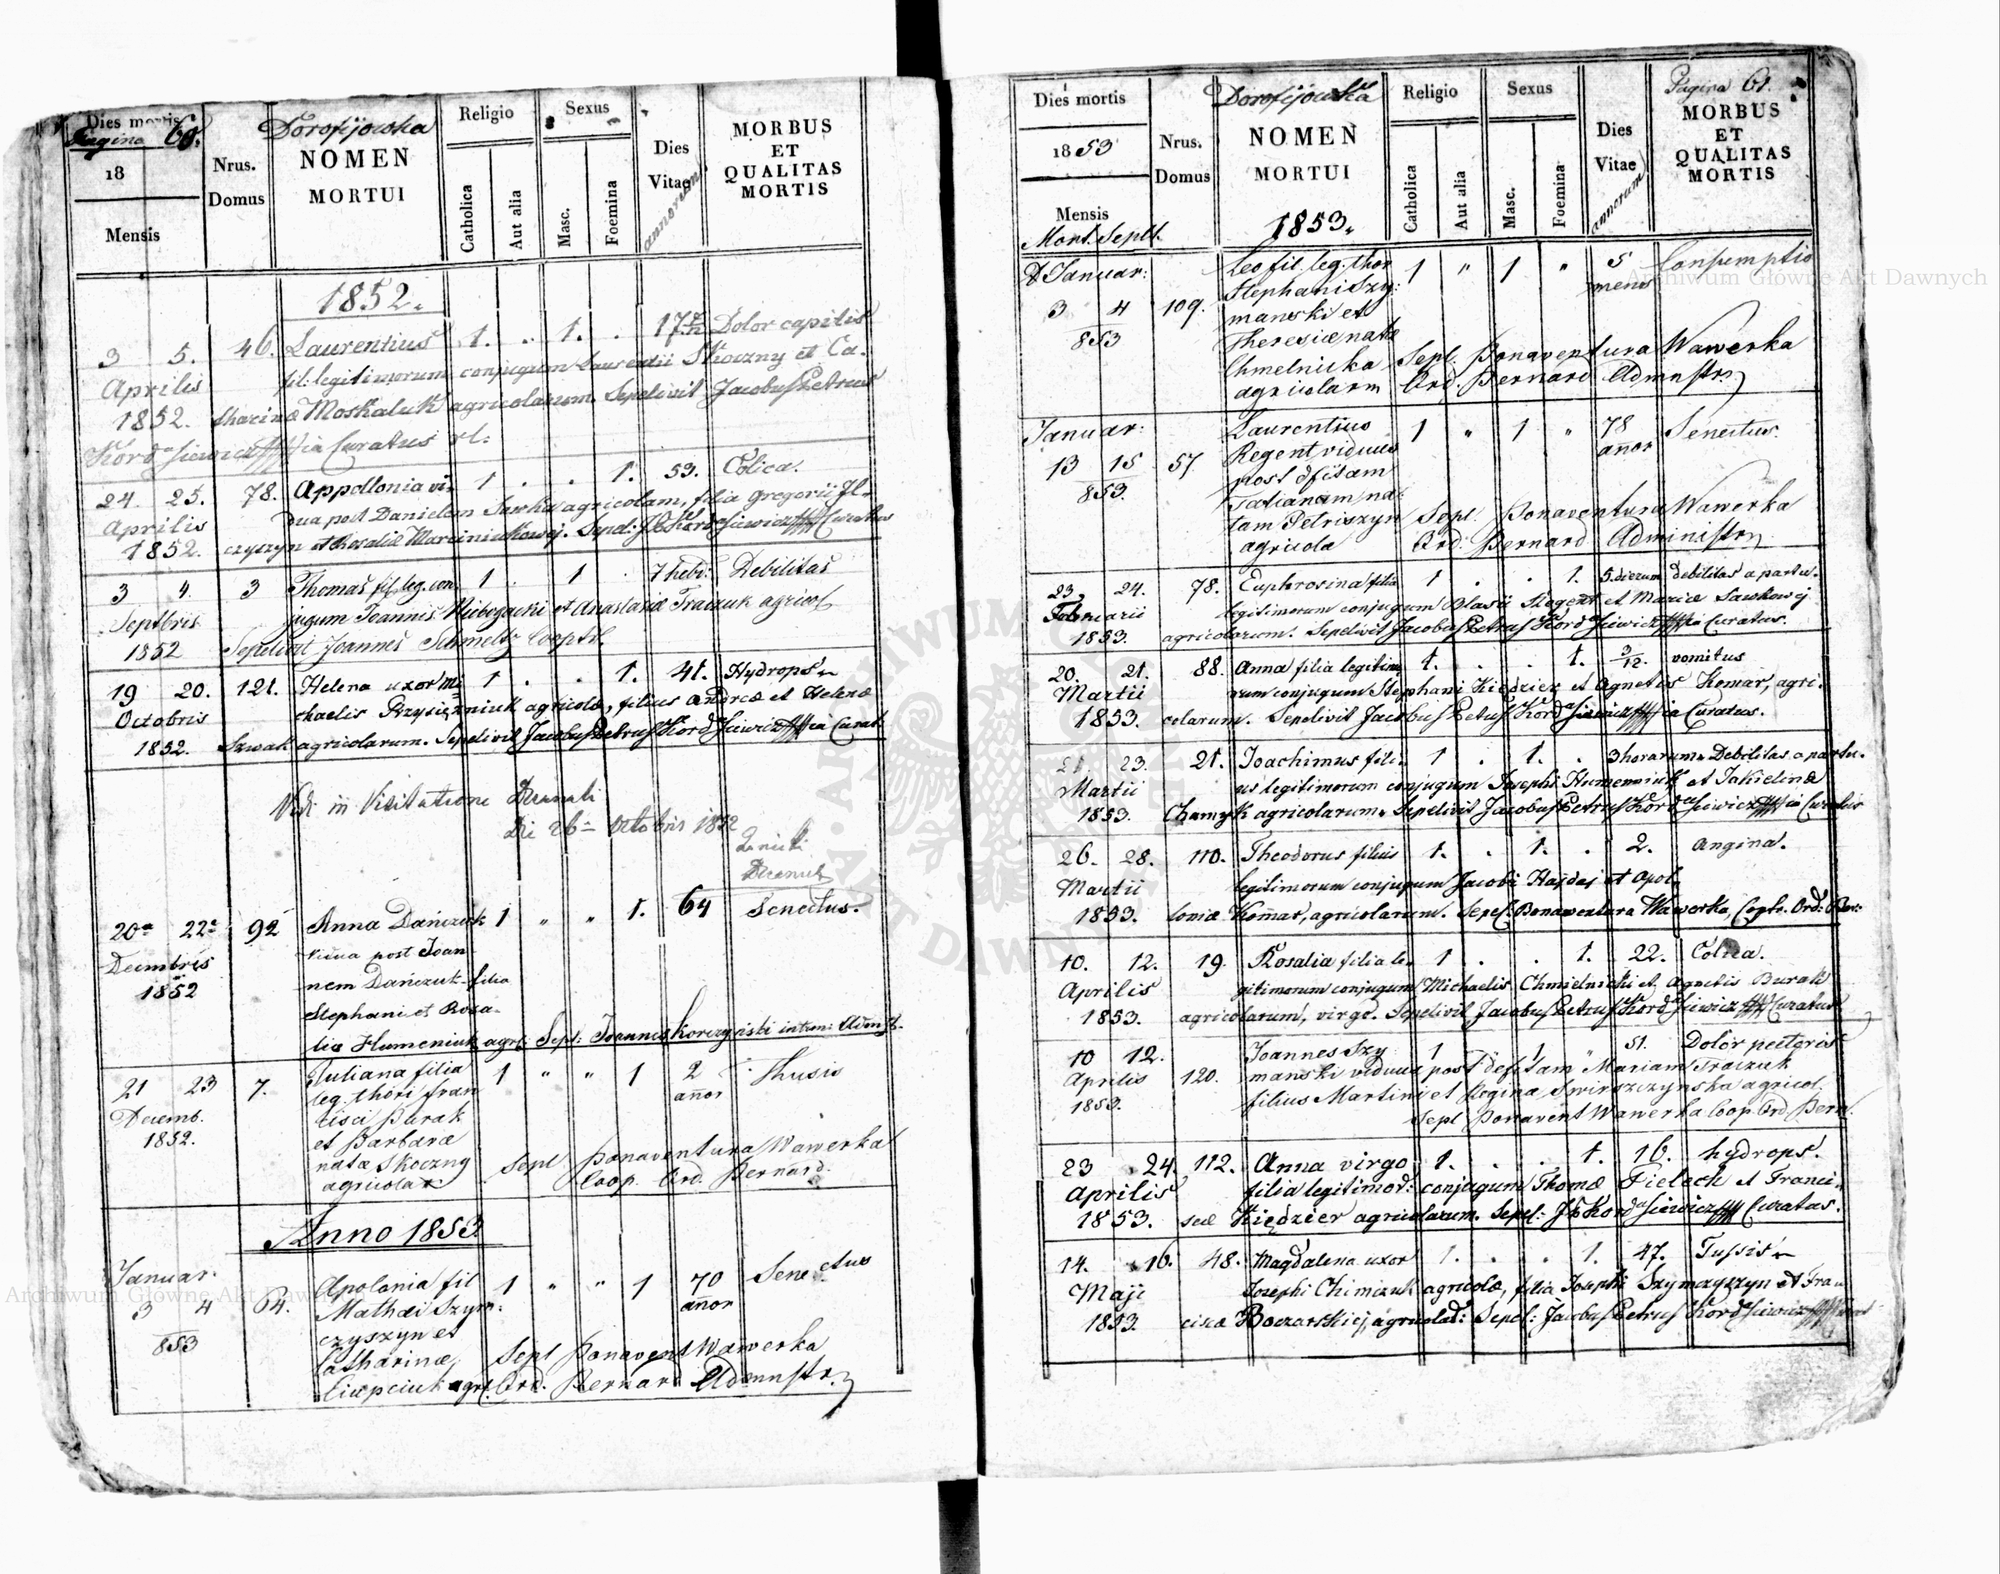 Dies mortis
Pagina 60.
18
Mensis
Nrus.
Domus
Dorofijowska
NOMEN
MORTUI
Religio
Catholica
Aut alia
Sexus
Masc.
Foemina
Dies
Vitae
annorum
MORBUS
ET
QUALITAS
MORTIS
1852.
3 5. 46. Laurentius 1. . 1. . 17 Dolor capitis
Aprilis fil: legitimorum conjugum Laurentii Skoczny et Ca-
1852. tharinæ Moskaluk agricolarum. Sepelivit Jacobus Petrus
Kordasiewicz Curatus rl:
24 25. 78. Appollonia vi- 1 . . 1. 53. Colica.
Aprilis dua post Danielem Sawka agricolam, filia Gregorii
1852. czyszyn et Rosaliæ Marciniukowej. Sepel: JP Kordasiewicz Curatus
3 4. 3 Thomas fil. leg. con- 1 . 1 . 7 hebd: Debilitas
Septbris jugum Joannis et Anastasiæ Traczuk agricol
1852 Sepelivit Joannes Schmeltz Cooptr.
19 20. 121. Helena uxor Mi- 1 . . 1. 41. Hydrops
Octobris chaelis Przysiężniuk agricolæ, filius Andreæ et Helenæ
1852. Szwak agricolarum. Sepelivit Jacobus Petrus Kordasiewicz Curat.
Vidi in Visitatione Decanali
Die 26 Octobris 1852
Decanus
20a 22a 92 Anna Dańczuk 1 " " 1. 64 Senectus.
Decembris vidua post Joan
1852 nem Dańczuk filia
Stephani et Rosa-
lia Humeniuk agri: Sepl: Joannes Korczyński interi: Admst.
21 23 7. Juliana filia 1 " " 1 2 Thusis
Decemb. leg. thori Fran añor
1852. cisci Burak
et Barbaræ
natæ Skoczny Sepl. Bonaventura Wawerka
agricolar Coop. Ord. Bernard.
Anno 1853
Januar Apolonia fil 1 " " 1 70 Senectus
3 4 64. Mathæi Szym: añor
853 czyszyn et
Catharinæ Sepl Bonavent Wawerka
Ciepciuk agrl. Ord. Bernard Admnstr.
Dies mortis
1853
Mensis
Mort. Seplt.
Nrus.
Domus
Dorofijowska
NOMEN
MORTUI
1853.
Religio
Catholica
Aut alia
Sexus
Masc.
Foemina
Dies
Vitae
annorum
Pagina 61.
MORBUS
ET
QUALITAS
MORTIS
D Januar: Leo fil. leg. thor 1 " 1 " 5 Consumptio
Stephani Szy: mens
3 4 109. manski et
853 Theresiæ natæ
Chmelnicka Sepl. Bonaventura Wawerka
agricolarm Ord. Bernard Admnstr.
Januar: Laurentius 1 " 1 " 78 Senectus.
13 15 57. Regent viduus añor
853. post dfctam
Tatianam na-
tam Petriszyn Sepl. Bonaventura Wawerka
agricola Ord: Bernard Administr.
23. 24. 78. Euphrosina filia 1 . . 1. 5. dierum debilitas a partu.
Februarii legitimorum conjugum Blasii Regent et Mariæ Sawkowej
1853. agricolarum. Sepelivit Jacobus Petrus Kordasiewicz Curatus.
20. 21. 88. Anna filia legitimo 1. . . 1. 3/12. vomitus
Martii rum conjugum Stephani Kiędzier et Agnetis Komar, agri-
1853. colarum. Sepelivit Jacobus Petrus Kordasiewicz Curatus.
21 23. 21. Joachimus fili- 1 . 1. . 3 horarum. Debilitas a partu.
Martii us legitimorum conjugum Josephi Humeniuk et Jakielinæ
1853. Chamyk agricolarum. Sepelivit Jacobus Petrus Kordasiewicz Curatus
26. 28. 110. Theodorus filius 1. . 1. . 2. Angina.
Martii legitimorum conjugum Jacobi Hajdaj et Apol-
1853. loniæ Komar, agricolarum. Sepel: Bonaventura Wawerka, Coptr. Ord: Ber:
10. 12. 19. Rosalia filia le- 1 . . 1. 22. Colica.
Aprilis gitimorum conjugum Michaelis Chmielnicki et Agnetis Burak
1853. agricolarum, virgo. Sepelivit Jacobus Petrus Kordasiewicz Curatus
10 12. Joannes Szy 1 1 " 51. Dolor pectoris
Aprilis 120. manski viduus post defctam Mariam Traczuk
1853. filius Martini et Regina Swirszczynska agricol.
Sepl Bonavent Wawerka Coop. Ord. Bern.
23 24 112. Anna virgo 1. . . 1. 16. hydrops.
Aprilis filia legitimor: conjugum Thomæ Fielach et Franci-
1853. scæ Kiędzier agricolarum. Sepel: JP Kordasiewicz Curatus.
14. 16. 48. Magdalena uxor 1. . . 1. 47. Tussis
Maji Josephi Chimczuk agricolæ, filia Josephi Szymczyszyn et Fran-
1853. ciscæ Boczarskiej, agricolar: Sepel: Jacobus Petrus Kordasiewicz
Archiwum Główne Akt Dawnych